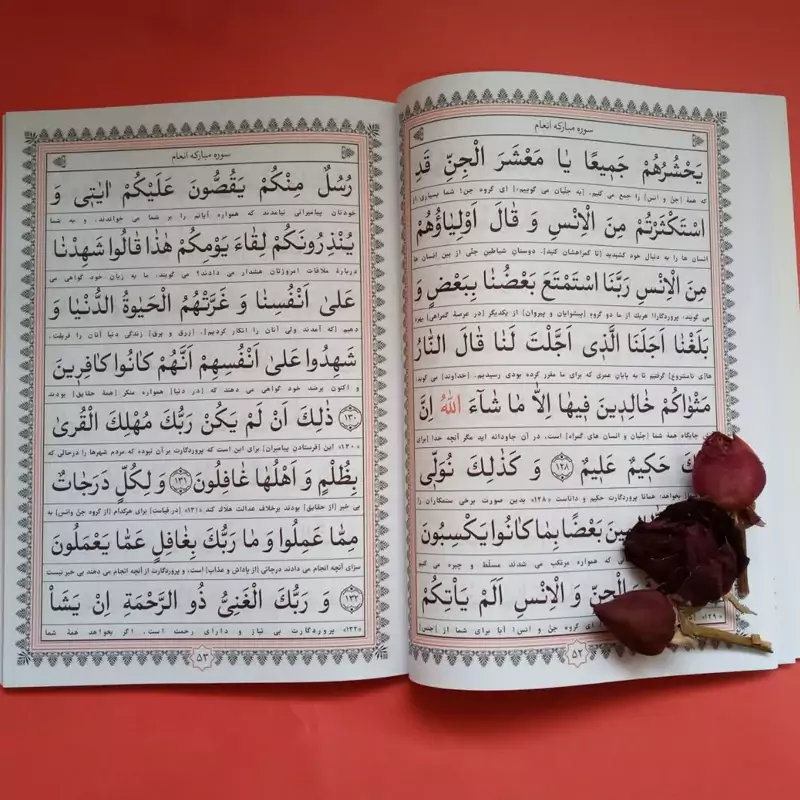 سوره مبارکه انعام
یَحْشُرُهُمْ جَمیعًا یا مَعْشَرَ الْجِنِّ قَدِ
که همهٔ [جن و انس] را جمع می کنیم. [به جنّیان می گوییم:] ای گروه جن! شما بسیاری از
اسْتَکْثَرْتُمْ مِنَ الْاِنْسِ وَ قالَ اَوْلِیاؤُهُمْ
انسان ها را به دنبال خود کشیدید [تا گمراهشان کنید]. دوستانِ شیاطینِ جنّی از بین انسان ها
مِنَ الْاِنْسِ رَبَّنَا اسْتَمْتَعَ بَعْضُنا بِبَعْضٍ وَ
می گویند: پروردگارا! هریک از ما دو گروهِ [پیشوایان و پیروان] از یکدیگر [در عرصهٔ گمراهی] بهره
بَلَغْنا اَجَلَنَا الَّذی اَجَّلْتَ لَنا قالَ النّارُ
های [نامشروع] گرفتیم تا به پایان عمری که برای ما مقرر کرده بودی رسیدیم. [خداوند] می گوید:
مَثْواکُمْ خالِدینَ فیها اِلّا ما شآءَ اللهُ اِنَّ
جایگاه همهٔ شما [جنّیان و انسان های گمراه] است، در آن جاودانه اید مگر آنچه خدا [برای
حَکیمٌ عَلیمٌ ﴿۱۲۸﴾ وَ کَذلِكَ نُوَلّی
بخواهد؛ همانا پروردگارت حکیم و داناست «۱۲۸» بدین صورت برخی ستمکاران را
بَعْضًا بِما کانُوا یَکْسِبُونَ
که همواره مرتکب می شدند مسلّط و چیره می کنیم
الْجِنِّ وَ الْاِنْسِ اَلَمْ یَأْتِکُمْ
«۱۲۹» ای گروه جنّ و انس! آیا برای شما از [جنس]
۵۲
سوره مبارکه انعام
رُسُلٌ مِنْکُمْ یَقُصُّونَ عَلَیْکُمْ ایاتی وَ
خودتان پیامبرانی نیامدند که همواره آیاتم را بر شما می خواندند، و به شما
یُنْذِرُونَکُمْ لِقاءَ یَوْمِکُمْ هذا قالُوا شَهِدْنا
دربارهٔ ملاقات امروزتان هشدار می دادند؟ می گویند: ما به زیان خود گواهی می
عَلی اَنْفُسِنا وَ غَرَّتْهُمُ الْحَیوةُ الدُّنْیا وَ
دهیم [که آمدند ولی آنان را انکار کردیم]. [زرق و برق] زندگی دنیا آنان را فریفت،
شَهِدُوا عَلی اَنْفُسِهِمْ اَنَّهُمْ کانُوا کافِرینَ
و اکنون برضد خود گواهی می دهند که [در دنیا] همواره منکر [همهٔ حقایق] بودند
﴿۱۳۰﴾ ذلِكَ اَنْ لَمْ یَکُنْ رَبُّكَ مُهْلِكَ الْقُری
«۱۳۰» این [فرستادن پیامبران] برای این است که پروردگارت بر آن نبوده که مردم شهرها را درحالی که
بِظُلْمٍ وَ اَهْلُها غافِلُونَ ﴿۱۳۱﴾ وَ لِکُلٍّ دَرَجاتٌ
بی خبر [از حقایق] بودند برخلاف عدالت هلاک کند «۱۳۱» [در قیامت] برای هرکدام [از گروه جنّ وانس] به
مِمّا عَمِلُوا وَ ما رَبُّكَ بِغافِلٍ عَمّا یَعْمَلُونَ
سزای آنچه انجام می دادند درجاتی [از پاداش و عذاب] است، و پروردگارت از آنچه انجام می دهند بی خبر نیست
﴿۱۳۲﴾ وَ رَبُّكَ الْغَنِیُّ ذُو الرَّحْمَةِ اِنْ یَشَأْ
«۱۳۲» پروردگارت بی نیاز و دارای رحمت است. اگر بخواهد همهٔ شما
۵۳